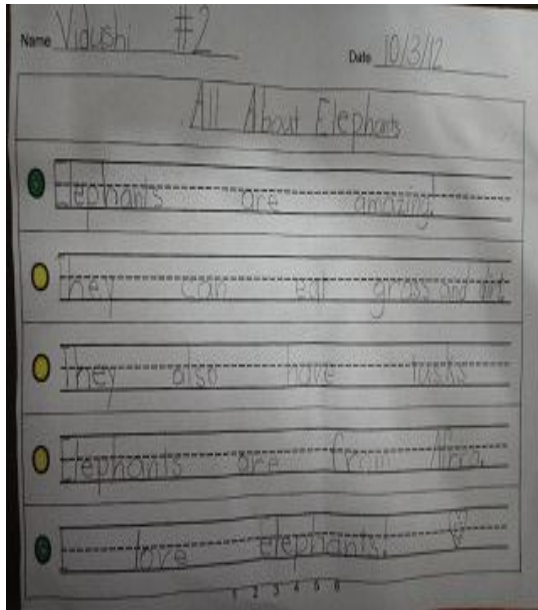 Name Vidushi #2
Date 10/3/12
All About Elephants
Elephants are amazing.
They can eat grass and dirt
They also have tusks
Elephants are from Africa.
I love elephants!
1 2 3 4 5 6